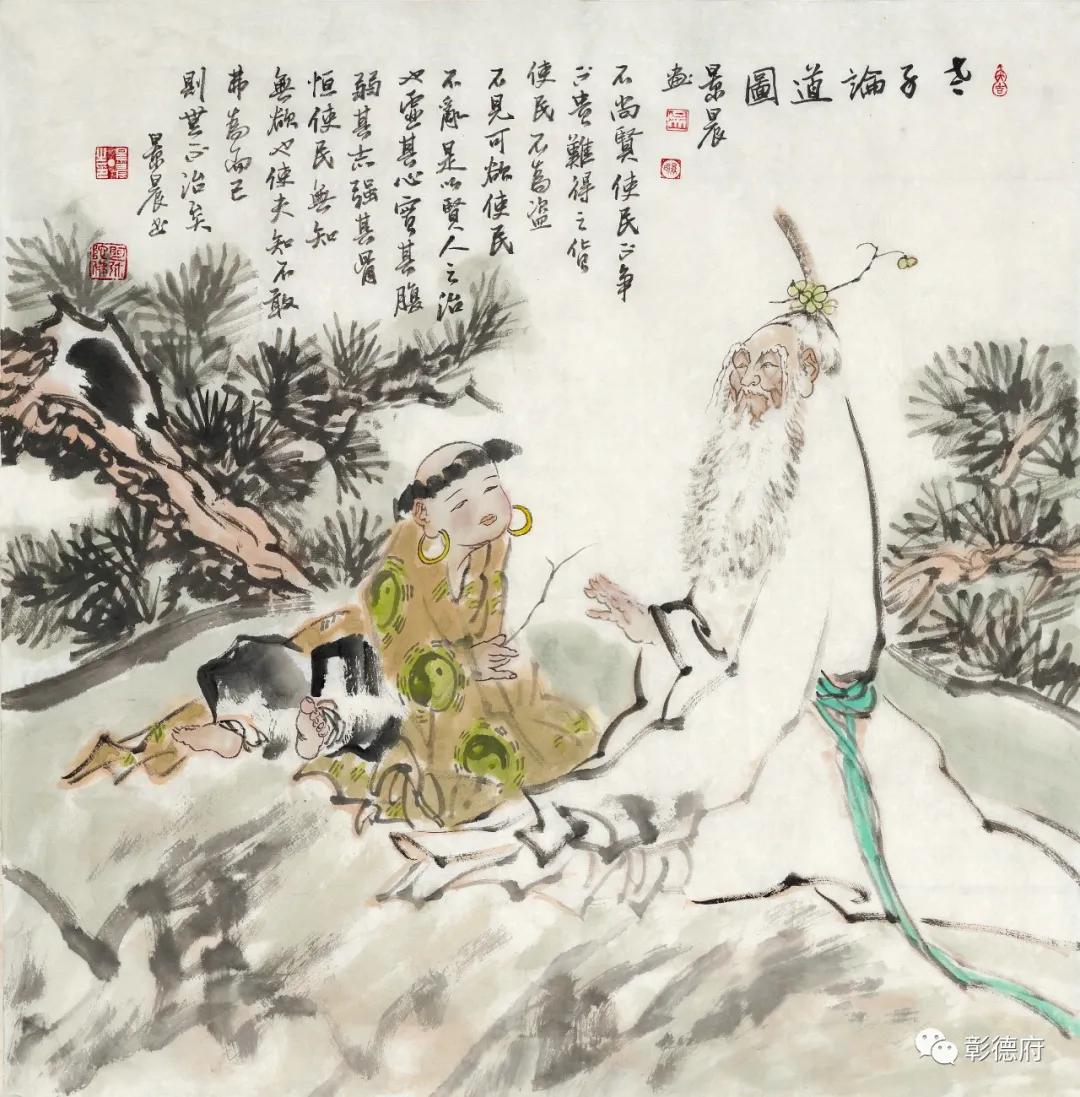 老子論道圖
景晨
畫
不尚賢使民不争
不貴難得之貨
使民不為盜
不見可欲使民
不亂是以賢人之治
也虛其心實其腹
弱其志强其骨
恒使民無知
無欲也使夫知不敢
弗為而已
則無不治矣
景晨书
阿弥陀佛
彰德府